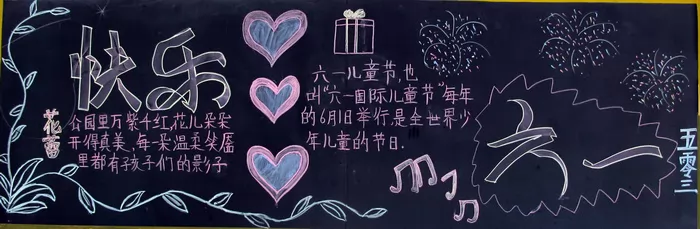 快乐
花蕾
公园里万紫千红花儿朵朵
开得真美,每一朵温柔笑靥
里都有孩子们的影子
六一儿童节,也
叫“六一国际儿童节”每年
的6月1日举行,是全世界少
年儿童的节日.
六一
五零三